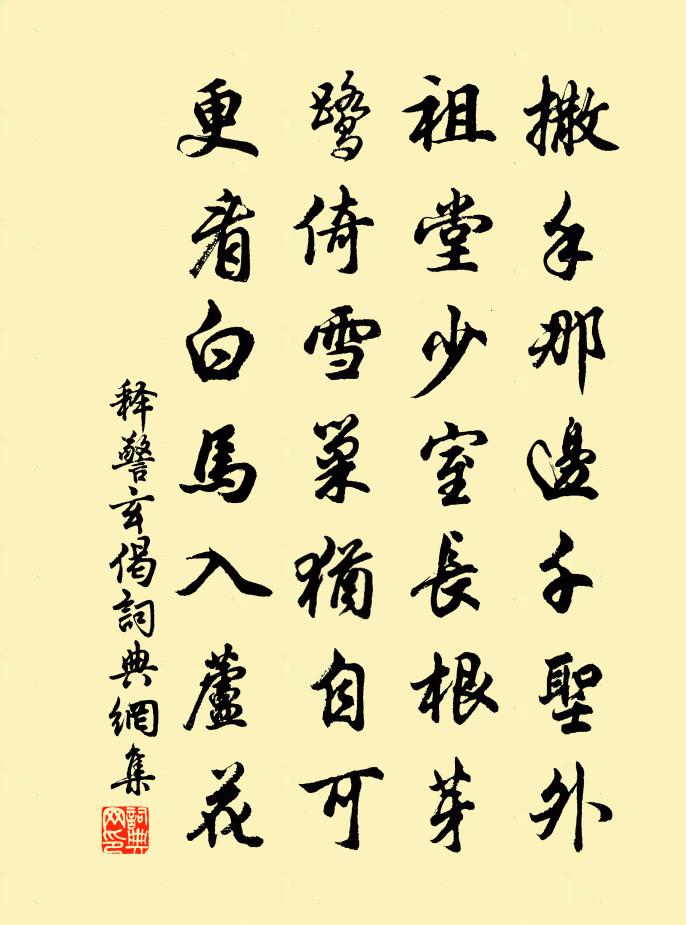 撒手那邊千聖外
祖堂少室長根芽
鷺倚雪巢猶自可
更看白馬入蘆花
释警玄偈詞典網集
詞典网印